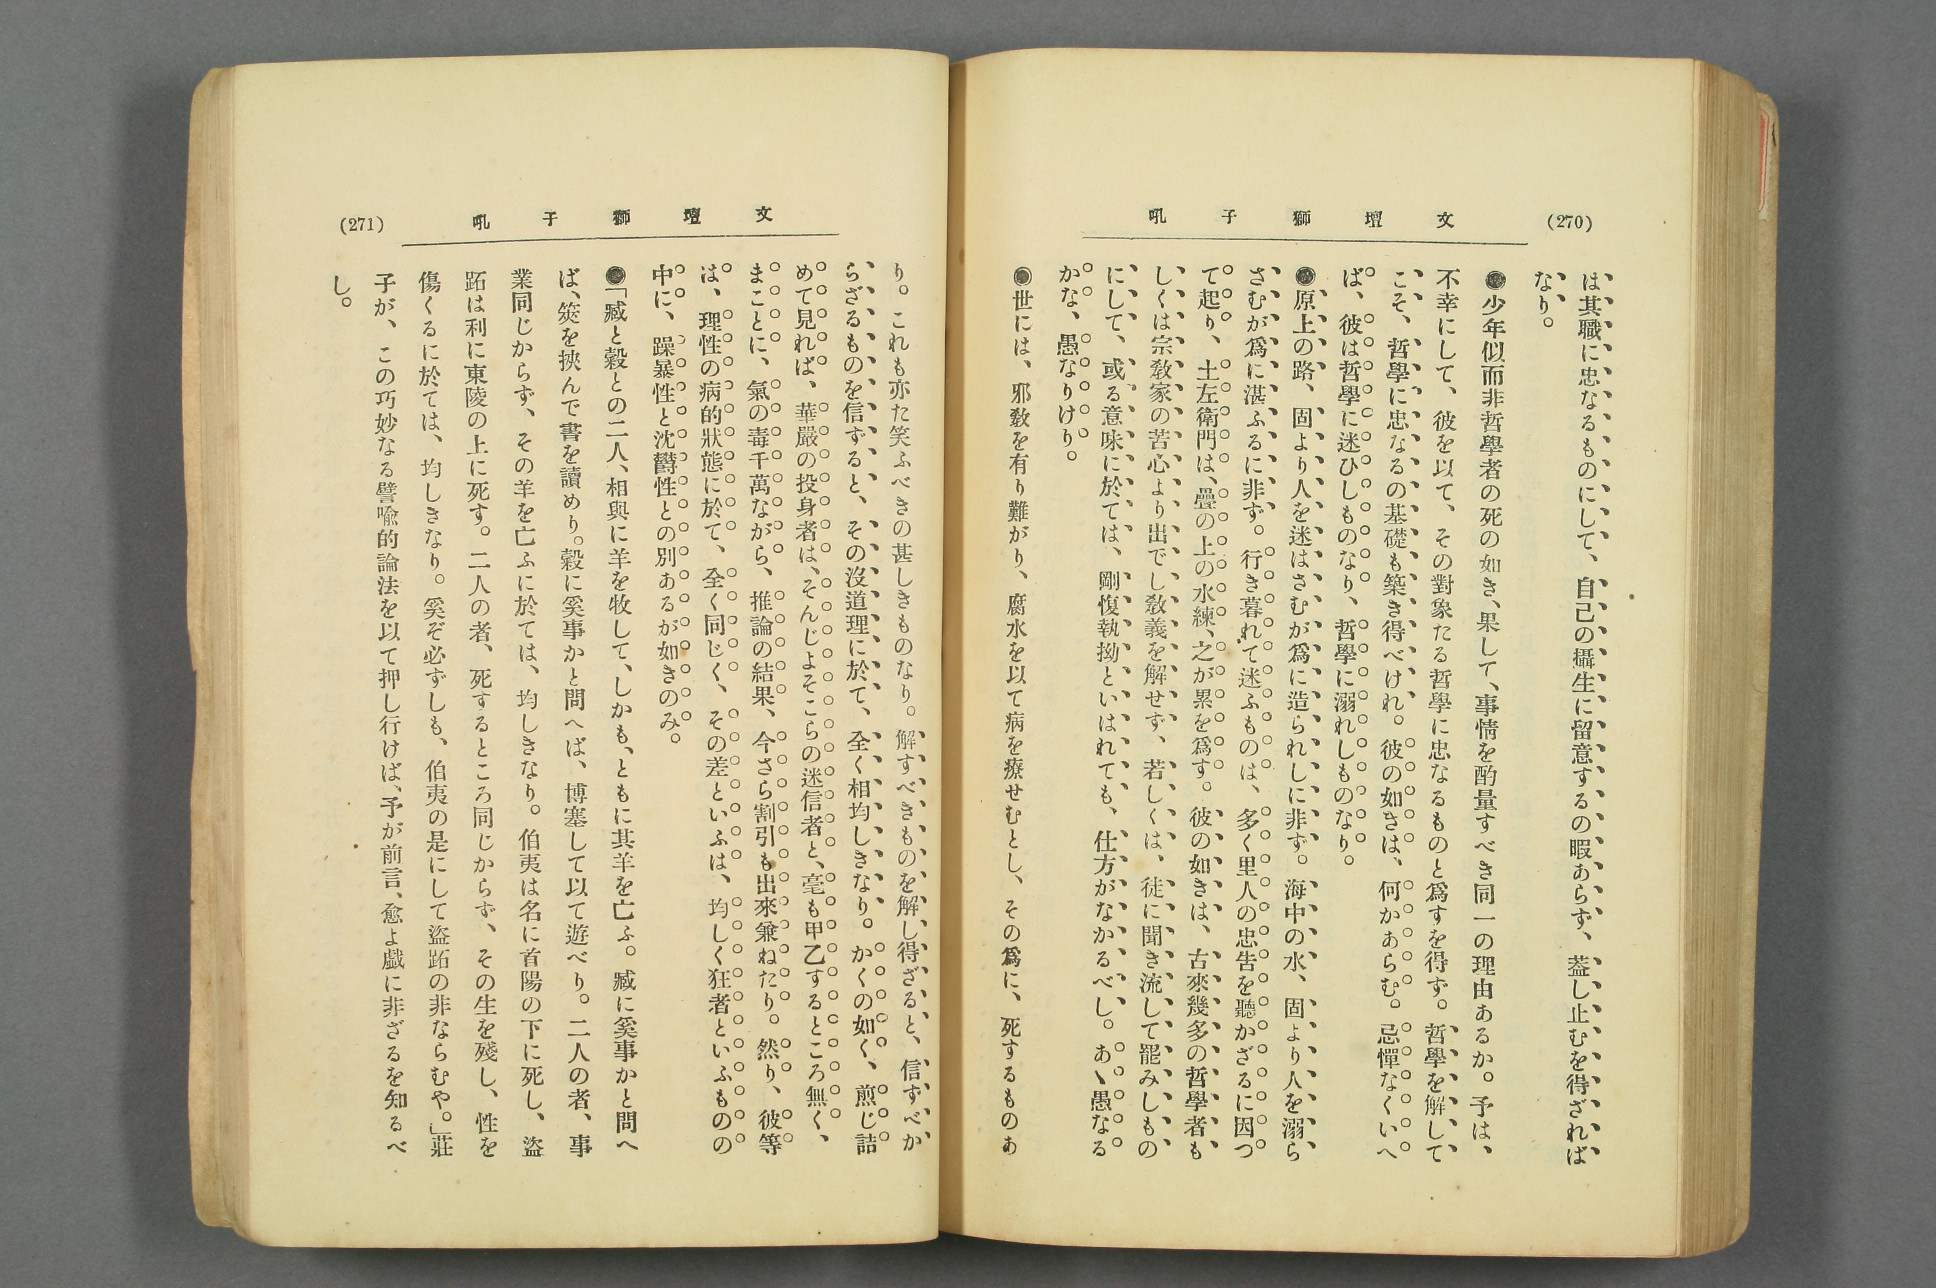 (270)
文壇獅子吼
は其職に忠なるものにして、自己の攝生に留意するの暇あらず、蓋し止むを得ざれば
なり。
●少年似而非哲學者の死の如き、果して、事情を酌量すべき同一の理由あるか。予は、
不幸にして、彼を以て、その對象たる哲學に忠なるものと爲すを得ず。哲學を解して
こそ、哲學に忠なるの基礎も築き得べけれ。彼の如きは、何かあらむ。忌憚なくいへ
ば、彼は哲學に迷ひしものなり、哲學に溺れしものなり。
●原上の路、固より人を迷はさむが爲に造られしに非ず。海中の水、固より人を溺ら
さむが爲に湛ふるに非ず。行き暮れて迷ふものは、多く里人の忠吿を聽かざるに因つ
て起り、土左衛門は、疊の上の水練、之が累を爲す。彼の如きは、古來幾多の哲學者も
しくは宗敎家の苦心より出でし敎義を解せず、若しくは、徒に聞き流して罷みしもの
にして、或る意味に於ては、剛愎執拗といはれても、仕方がなかるべし。あゝ愚なる
かな、愚なりけり。
●世には、邪敎を有り難がり、腐水を以て病を療せむとし、その爲に、死するものあ
(271)
文壇獅子吼
り。これも亦た笑ふべきの甚しきものなり。解すべきものを解し得ざると、信ずべか
らざるものを信ずると、その沒道理に於て、全く相均しきなり。かくの如く、煎じ詰
めて見れば、華嚴の投身者は、そんじよそこらの迷信者と、毫も甲乙するところ無く、
まことに、氣の毒千萬ながら、推論の結果、今さら割引も出來兼ねたり。然り、彼等
は、理性の病的狀態に於て、全く同じく、その差といふは、均しく狂者といふものの
中に、躁暴性と沈欝性との別あるが如きのみ。
●「臧と穀との二人、相與に羊を牧して、しかも、ともに其羊を亡ふ。臧に奚事かと問へ
ば、筴を挾んで書を讀めり。穀に奚事かと問へば、博塞して以て遊べり。二人の者、事
業同じからず、その羊を亡ふに於ては、均しきなり。伯夷は名に首陽の下に死し、盜
跖は利に東陵の上に死す。二人の者、死するところ同じからず、その生を殘し、性を
傷くるに於ては、均しきなり。奚ぞ必ずしも、伯夷の是にして盜跖の非ならむや。」莊
子が、この巧妙なる譬喩的論法を以て押し行けば、予が前言、愈よ戲に非ざるを知るべ
し。